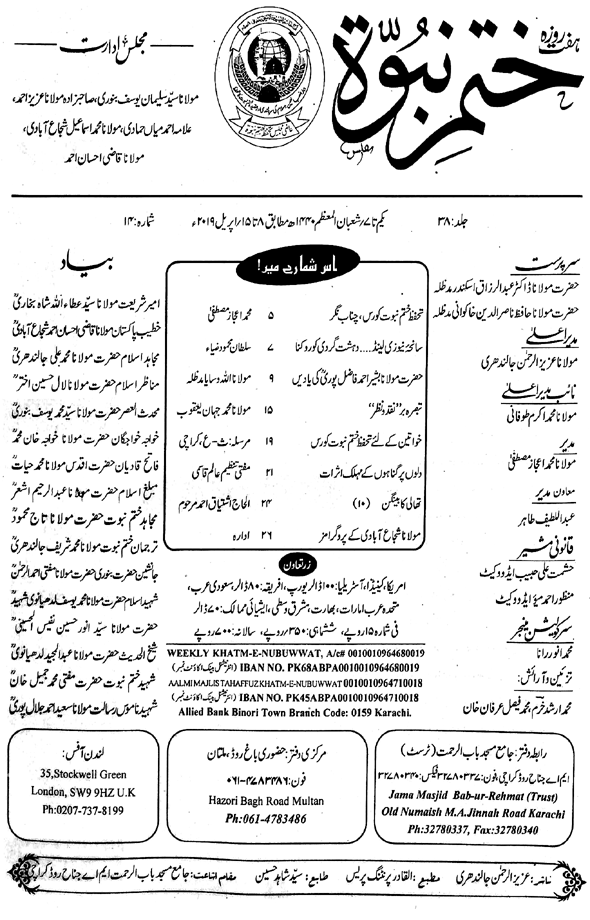 ہفت روزہ
ختم نبوۃ
مجلس ادارت
مولانا سیّد سلیمان یوسف بنوری، صاحبزادہ مولانا عزیز احمد،
علامہ احمد میاں حمادی، مولانا محمد اسماعیل شجاع آبادی،
مولانا قاضی احسان احمد
جلد: ۳۸
یکم تا ۷/شعبان المعظم ۱۴۴۰ھ مطابق ۸ تا ۱۵/اپریل ۲۰۱۹ء
شمارہ: ۱۴
سرپرست
حضرت مولانا ڈاکٹر عبدالرزاق اسکندر مدظلہ
حضرت مولانا حافظ ناصر الدین خاکوانی مدظلہ
مدیر اعلیٰ
مولانا عزیز الرحمٰن جالندھری
نائب مدیر اعلیٰ
مولانا محمد اکرم طوفانی
مدیر
مولانا محمد اعجاز مصطفیٰ
معاون مدیر
عبداللطیف طاہر
قانونی مشیر
حشمت علی حبیب ایڈووکیٹ
منظور احمد میؤ ایڈووکیٹ
سرکولیشن منیجر
محمد انور رانا
تزئین و آرائش:
محمد ارشد خرم، محمد فیصل عرفان خان
اس شمارے میں!
تحفظ ختم نبوت کورس، چناب نگر ۵ محمد اعجاز مصطفیٰ
سانحۂ نیوزی لینڈ.... دہشت گردی کو روکنا ۷ سلطان محمود ضیاء
حضرت مولانا بشیر احمد فاضل پوریؒ کی یادیں ۹ مولانا اللہ وسایا مدظلہ
تبصرہ بر ”نقد و نظر“ ۱۵ مولانا محمد جہان یعقوب
خواتین کے لئے تحفظ ختم نبوت کورس ۱۹ مرسلہ: ث-ع، کراچی
دلوں پر گناہوں کے مہلک اثرات ۲۱ مفتی تنظیم عالم قاسمی
تھالی کا بینگن (۱۰) ۲۴ الحاج اشتیاق احمد مرحوم
مولانا شجاع آبادی کے پروگرامز ۲۶ ادارہ
زرتعاون
امریکا، کینیڈا، آسٹریلیا: ۱۰۰ ڈالر یورپ، افریقہ: ۸۰ ڈالر، سعودی عرب،
متحدہ عرب امارات، بھارت، مشرق وسطیٰ، ایشیائی ممالک: ۷۰ ڈالر
فی شمارہ ۱۵ روپے، ششماہی: ۳۵۰ روپے، سالانہ: ۷۰۰ روپے
WEEKLY KHATM-E-NUBUWWAT, A/c# 0010010964680019
IBAN NO. PK68ABPA0010010964680019 (انٹرنیشنل بینک اکاؤنٹ نمبر)
AALMI MAJLIS TAHAFFUZ KHATM-E-NUBUWWAT 0010010964710018
IBAN NO. PK45ABPA0010010964710018 (انٹرنیشنل بینک اکاؤنٹ نمبر)
Allied Bank Binori Town Branch Code: 0159 Karachi.
بیاد
امیر شریعت مولانا سیّد عطاء اللہ شاہ بخاریؒ
خطیب پاکستان مولانا قاضی احسان احمد شجاع آبادیؒ
مجاہد اسلام حضرت مولانا محمد علی جالندھریؒ
مناظر اسلام حضرت مولانا لال حسین اخترؒ
محدث العصر حضرت مولانا سیّد محمد یوسف بنوریؒ
خواجہ خواجگان حضرت مولانا خواجہ خان محمدؒ
فاتح قادیان حضرت اقدس مولانا محمد حیاتؒ
مبلغ اسلام حضرت مولانا عبدالرحیم اشعرؒ
مجاہد ختم نبوت حضرت مولانا تاج محمودؒ
ترجمان ختم نبوت حضرت مولانا محمد شریف جالندھریؒ
جانشین حضرت بنوری حضرت مولانا مفتی احمد الرحمٰنؒ
شہید اسلام حضرت مولانا محمد یوسف لدھیانوی شہیدؒ
حضرت مولانا سیّد انور حسین نفیس الحسینیؒ
شیخ الحدیث حضرت مولانا عبدالمجید لدھیانویؒ
شہید ختم نبوت حضرت مفتی محمد جمیل خانؒ
شہید ناموس رسالت مولانا سعید احمد جلال پوریؒ
رابطہ دفتر: جامع مسجد باب الرحمت (ٹرسٹ)
ایم اے جناح روڈ کراچی، فون: ۳۲۷۸۰۳۳۷ فیکس: ۳۲۷۸۰۳۴۰
Jama Masjid Bab-ur-Rehmat (Trust)
Old Numaish M.A.Jinnah Road Karachi
Ph:32780337, Fax:32780340
مرکزی دفتر: حضوری باغ روڈ، ملتان
فون: ۰۶۱-۴۷۸۳۴۸۶
Hazori Bagh Road Multan
Ph:061-4783486
لندن آفس:
35,Stockwell Green
London, SW9 9HZ U.K
Ph:0207-737-8199
ناشر: عزیز الرحمٰن جالندھری مطبع: القادر پرنٹنگ پریس طابع: سیّد شاہد حسین مقام اشاعت: جامع مسجد باب الرحمت ایم اے جناح روڈ کراچی